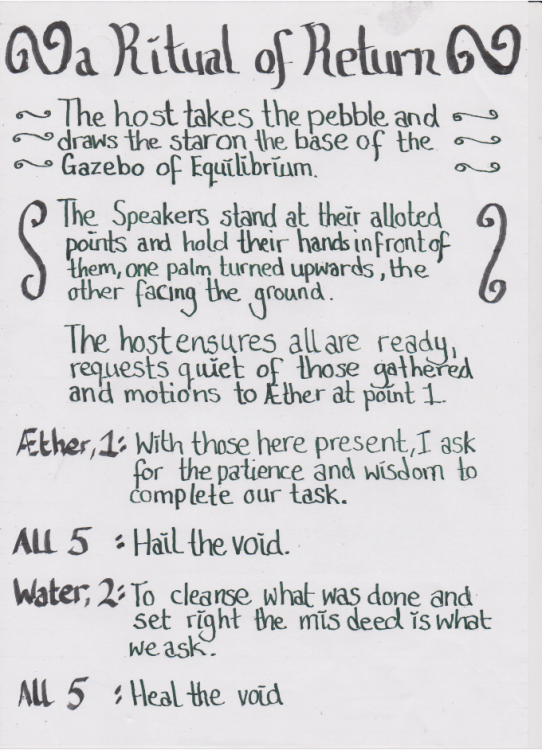 a Ritual of Return
The host takes the pebble and
draws the star on the base of the
Gazebo of Equilibrium.
The Speakers stand at their alloted
points and hold their hands in front of
them, one palm turned upwards, the
other facing the ground.
The host ensures all are ready,
requests quiet of those gathered
and motions to Æther at point 1.
Æther, 1: With those here present, I ask
for the patience and wisdom to
complete our task.
All 5 : Hail the void.
Water, 2: To cleanse what was done and
set right the misdeed is what
we ask.
All 5 : Heal the void